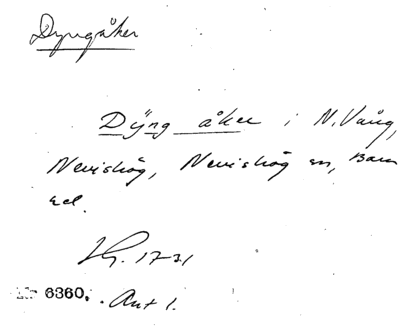 Dyngåker
Dÿng åker i N. Vång,
Nevishög, Nevishög sn, Bara
hd.
LG. 1731
6360. Ant 1.